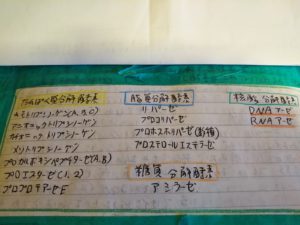 たんぱく質分解酵素
キモトリプシノーゲン(A,B,C)
アニオニックトリプシノーゲン
カチオニックトリプシノーゲン
メソトリプシノーゲン
プロカルボキシペプチダーゼ(A,B)
プロエラスターゼ(1,2)
プロプロテアーゼE
脂質分解酵素
リパーゼ
プロコリパーゼ
プロホスホリパーゼ
プロステロールエステラーゼ
糖質分解酵素
アミラーゼ
核酸分解酵素
DNAアーゼ
RNAアーゼ